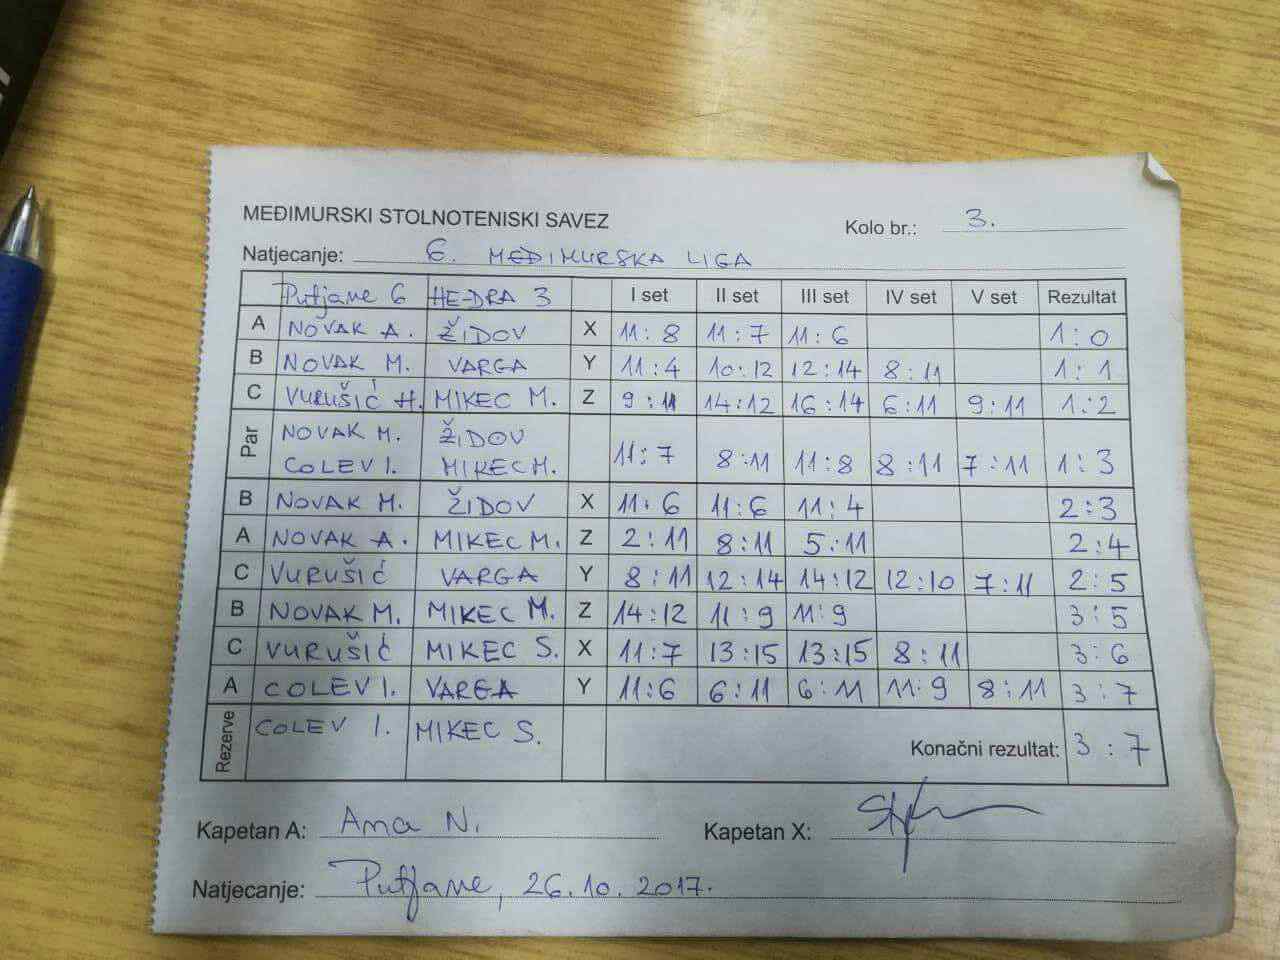 MEĐIMURSKI STOLNOTENISKI SAVEZ
Kolo br.: 3.
Natjecanje: 6. MEĐIMURSKA LIGA
Putjane 6 HEDRA 3 I set II set III set IV set V set Rezultat
A NOVAK A. ŽIDOV X 11:8 11:7 11:6 1:0
B NOVAK M. VARGA Y 11:4 10:12 12:14 8:11 1:1
C VURUŠIĆ H. MIKEC M. Z 9:11 14:12 16:14 6:11 9:11 1:2
Par NOVAK M. ŽIDOV
COLEV I. MIKEC M. 11:7 8:11 11:8 8:11 7:11 1:3
B NOVAK M. ŽIDOV X 11:6 11:6 11:4 2:3
A NOVAK A. MIKEC M. Z 2:11 8:11 5:11 2:4
C VURUŠIĆ VARGA Y 8:11 12:14 14:12 12:10 7:11 2:5
B NOVAK M. MIKEC M. Z 14:12 11:9 11:9 3:5
C VURUŠIĆ MIKEC S. X 11:7 13:15 13:15 8:11 3:6
A COLEV I. VARGA Y 11:6 6:11 6:11 11:9 8:11 3:7
Rezerve COLEV I. MIKEC S.
Konačni rezultat: 3:7
Kapetan A: Ana N. Kapetan X:
Natjecanje: Putjane, 26.10.2017.